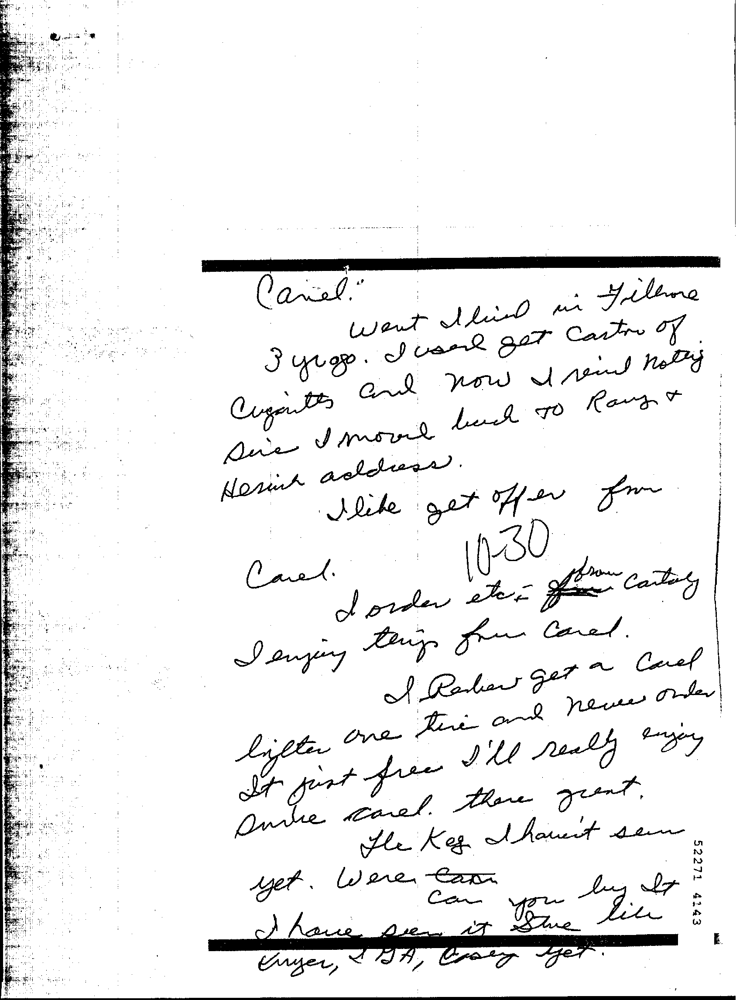 Camel."
Went I lived in Filmore
3 yr ago. I used get Carton of
Cigaretts and now I reind noting
sine I moved back to Rang +
address.
I like get offer from
10-30
Camel.
I order etc - from
I enjoy tings from Camel.
I get a Camel
lighter one time and never order
It just free I'll really enjoy
Camel. there great.
The Keg I haven't seen
yet. Were can you buy It
I have seen it Stue like
Kruger, IGA, Casey Yet.
52271 4143